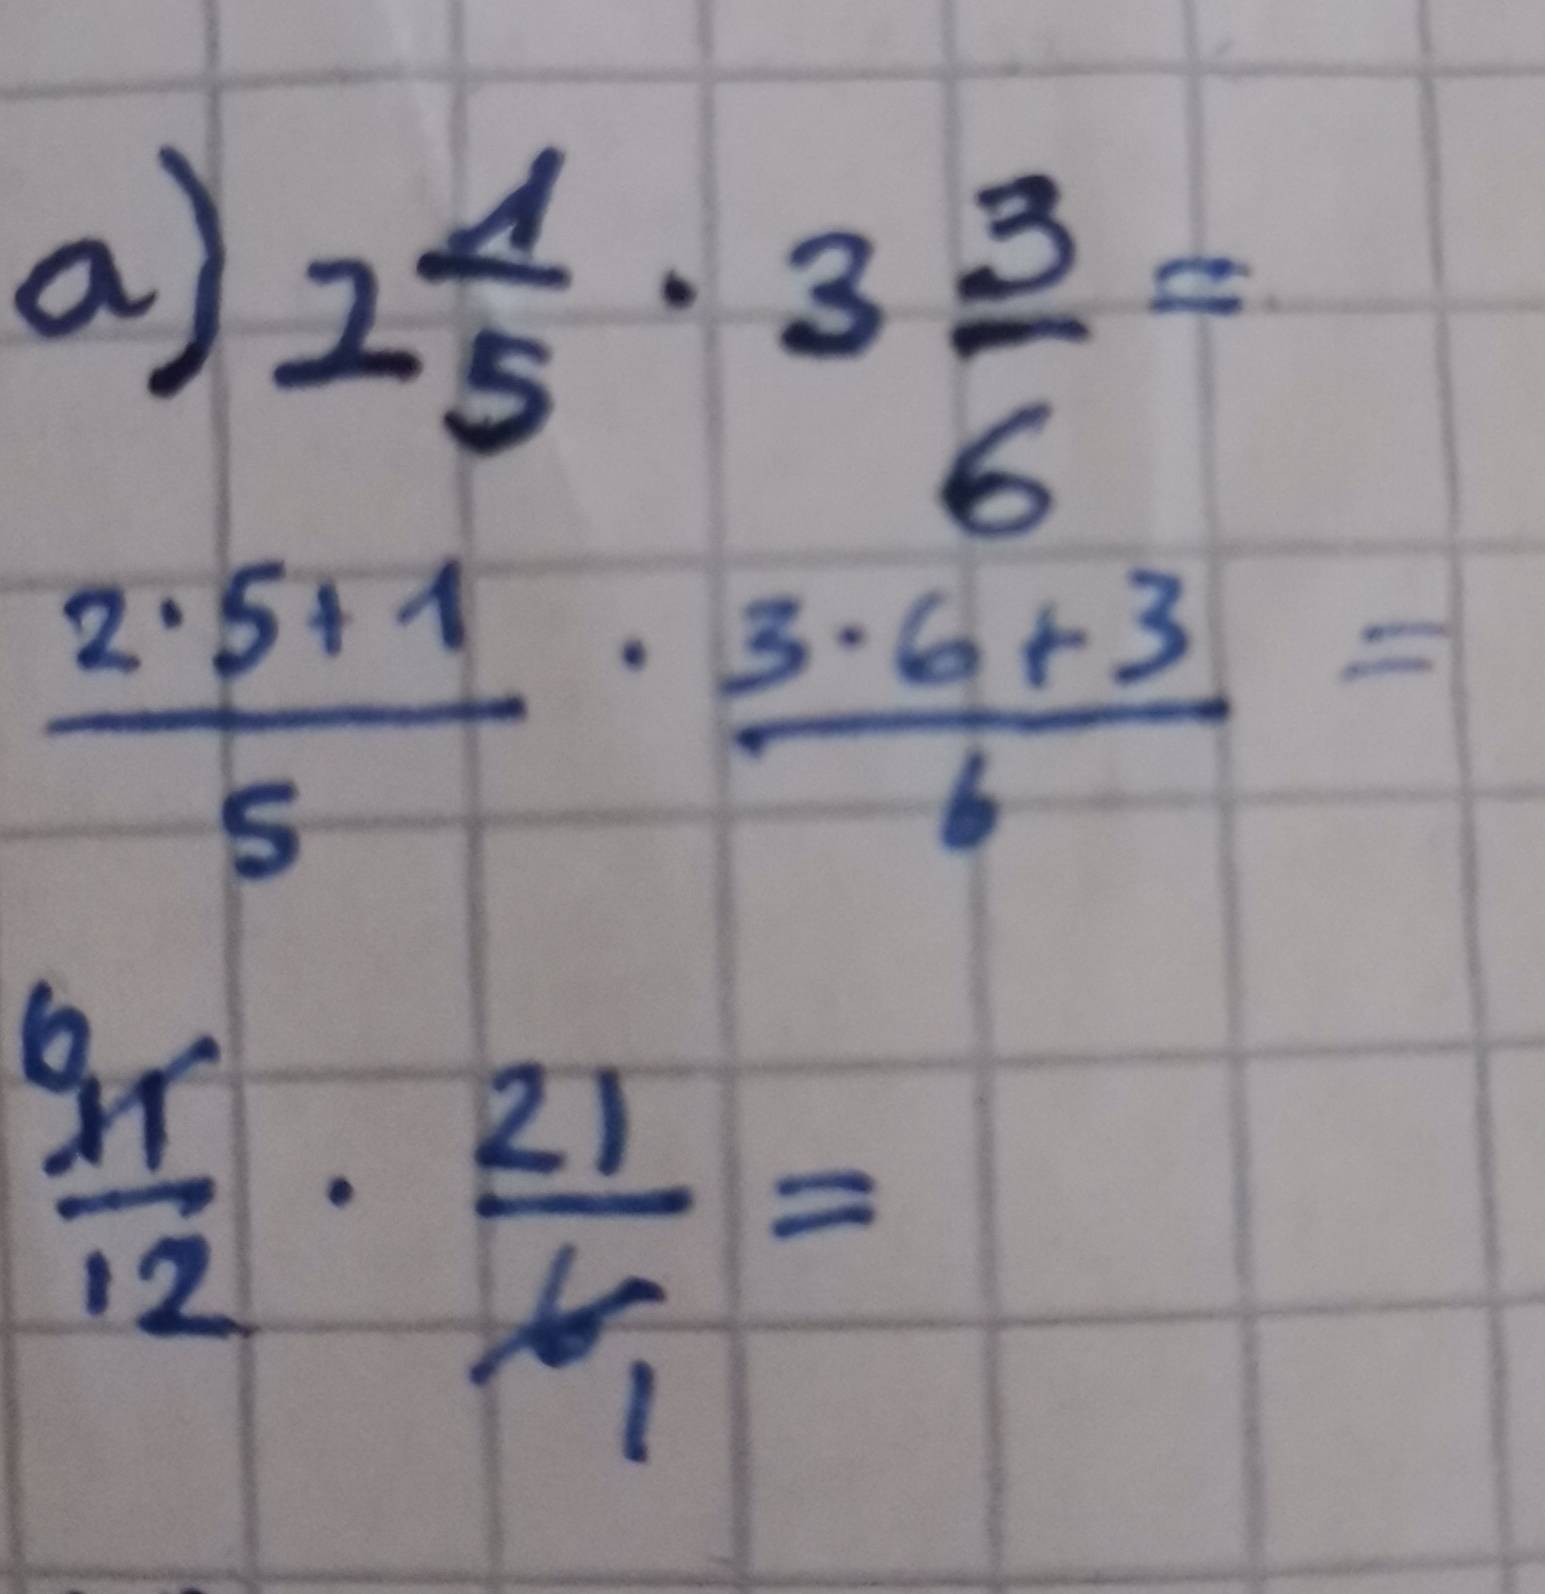 a) 2 1/5 · 3 3/6 =
2·5+1/5 · 3·6+3/6 =
6 11/12 · 21/6 1 =